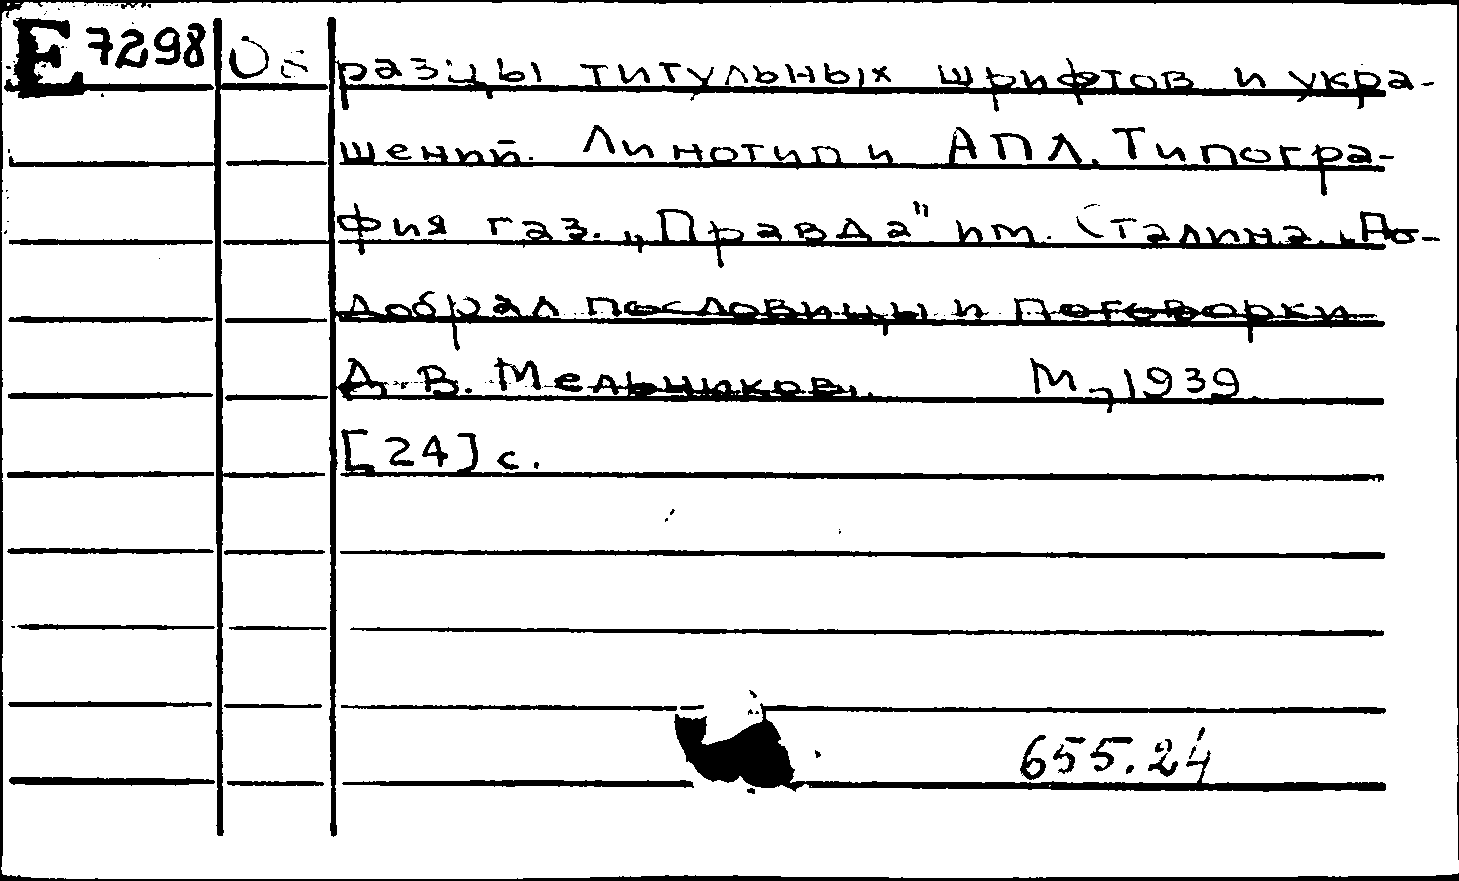 E 7298 Образцы титульных шрифтов и укра-
шений. Линотип и АПЛ. Типогра-
фия газ. „Правда" им. Сталина. „По-
добрал пословицы и поговорки
Д. В. Мельников. М., 1939.
[24] с.
655.24